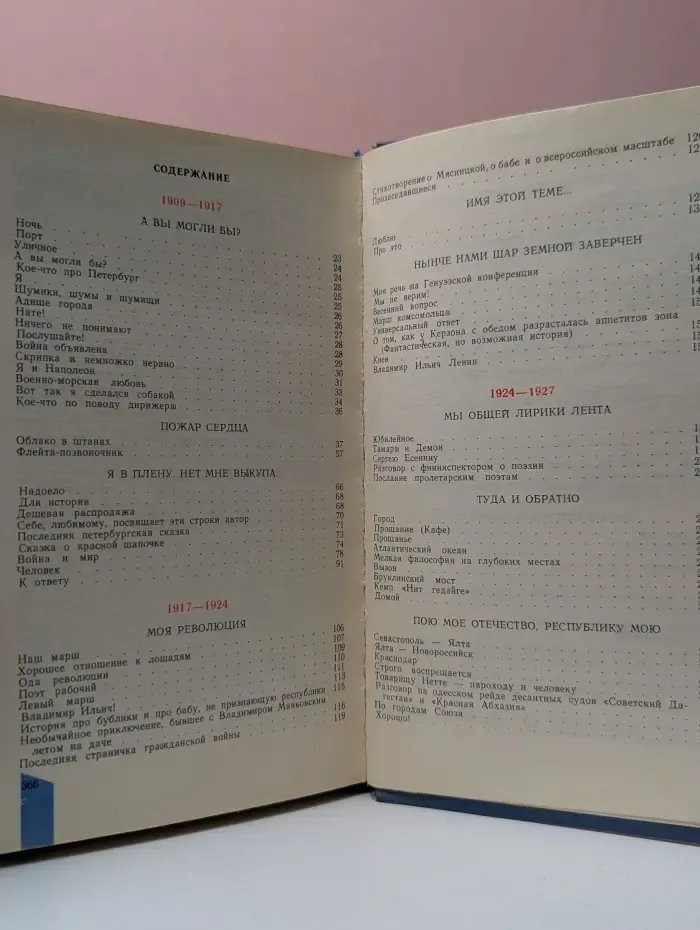 СОДЕРЖАНИЕ
1909—1917
А ВЫ МОГЛИ БЫ?
Ночь
Порт
Уличное 23
А вы могли бы? 24
Кое-что про Петербург 24
Я 25
Шумики, шумы и шумищи 25
Адище города 25
Нате! 26
Ничего не понимают 26
Послушайте! 27
Война объявлена 28
Скрипка и немножко нервно 28
Я и Наполеон 29
Военно-морская любовь 30
Вот так я сделался собакой 31
Кое-что по поводу дирижера 33
34
36
ПОЖАР СЕРДЦА
Облако в штанах 37
Флейта-позвоночник 57
Я В ПЛЕНУ. НЕТ МНЕ ВЫКУПА.
Надоело 66
Для истории 68
Дешевая распродажа 68
Себе, любимому, посвящает эти строки автор 70
Последняя петербургская сказка 71
Сказка о красной шапочке 73
Война и мир 74
Человек 78
К ответу 91
1917—1924
МОЯ РЕВОЛЮЦИЯ
Наш марш 106
Хорошее отношение к лошадям 107
Ода революции 109
Поэт рабочий 110
Левый марш 111
Владимир Ильич! 113
История про бублики и про бабу, не признающую республики 115
Необычайное приключение, бывшее с Владимиром Маяковским
летом на даче 116
Последняя страничка гражданской войны 119
366
Стихотворение о Мясницкой, о бабе и о всероссийском масштабе
Прозаседавшиеся
ИМЯ ЭТОЙ ТЕМЕ...
Люблю
Про это
НЫНЧЕ НАМИ ШАР ЗЕМНОЙ ЗАВЕРЧЕН
Моя речь на Генуэзской конференции
Мы не верим!
Весенний вопрос
Марш комсомольца
Универсальный ответ
О том, как у Керзона с обедом разрасталась аппетитов зона
(Фантастическая, но возможная история)
Киев
Владимир Ильич Ленин
1924—1927
МЫ ОБЩЕЙ ЛИРИКИ ЛЕНТА
Юбилейное
Тамара и Демон
Сергею Есенину
Разговор с фининспектором о поэзии
Послание пролетарским поэтам
ТУДА И ОБРАТНО
Город
Прощание (Кафе)
Прощанье
Атлантический океан
Мелкая философия на глубоких местах
Вызов
Бруклинский мост
Кемп «Нит гедайге»
Домой
ПОЮ МОЕ ОТЕЧЕСТВО, РЕСПУБЛИКУ МОЮ
Севастополь — Ялта
Ялта — Новороссийск
Краснодар
Строго воспрещается
Товарищу Нетте — пароходу и человеку
Разговор на одесском рейде десантных судов «Советский Да-
гестан» и «Красная Абхазия»
По городам Союза
Хорошо!